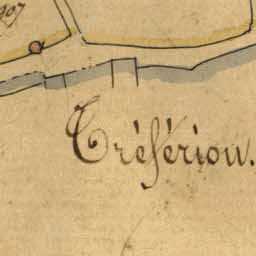 907
Tréfériou.